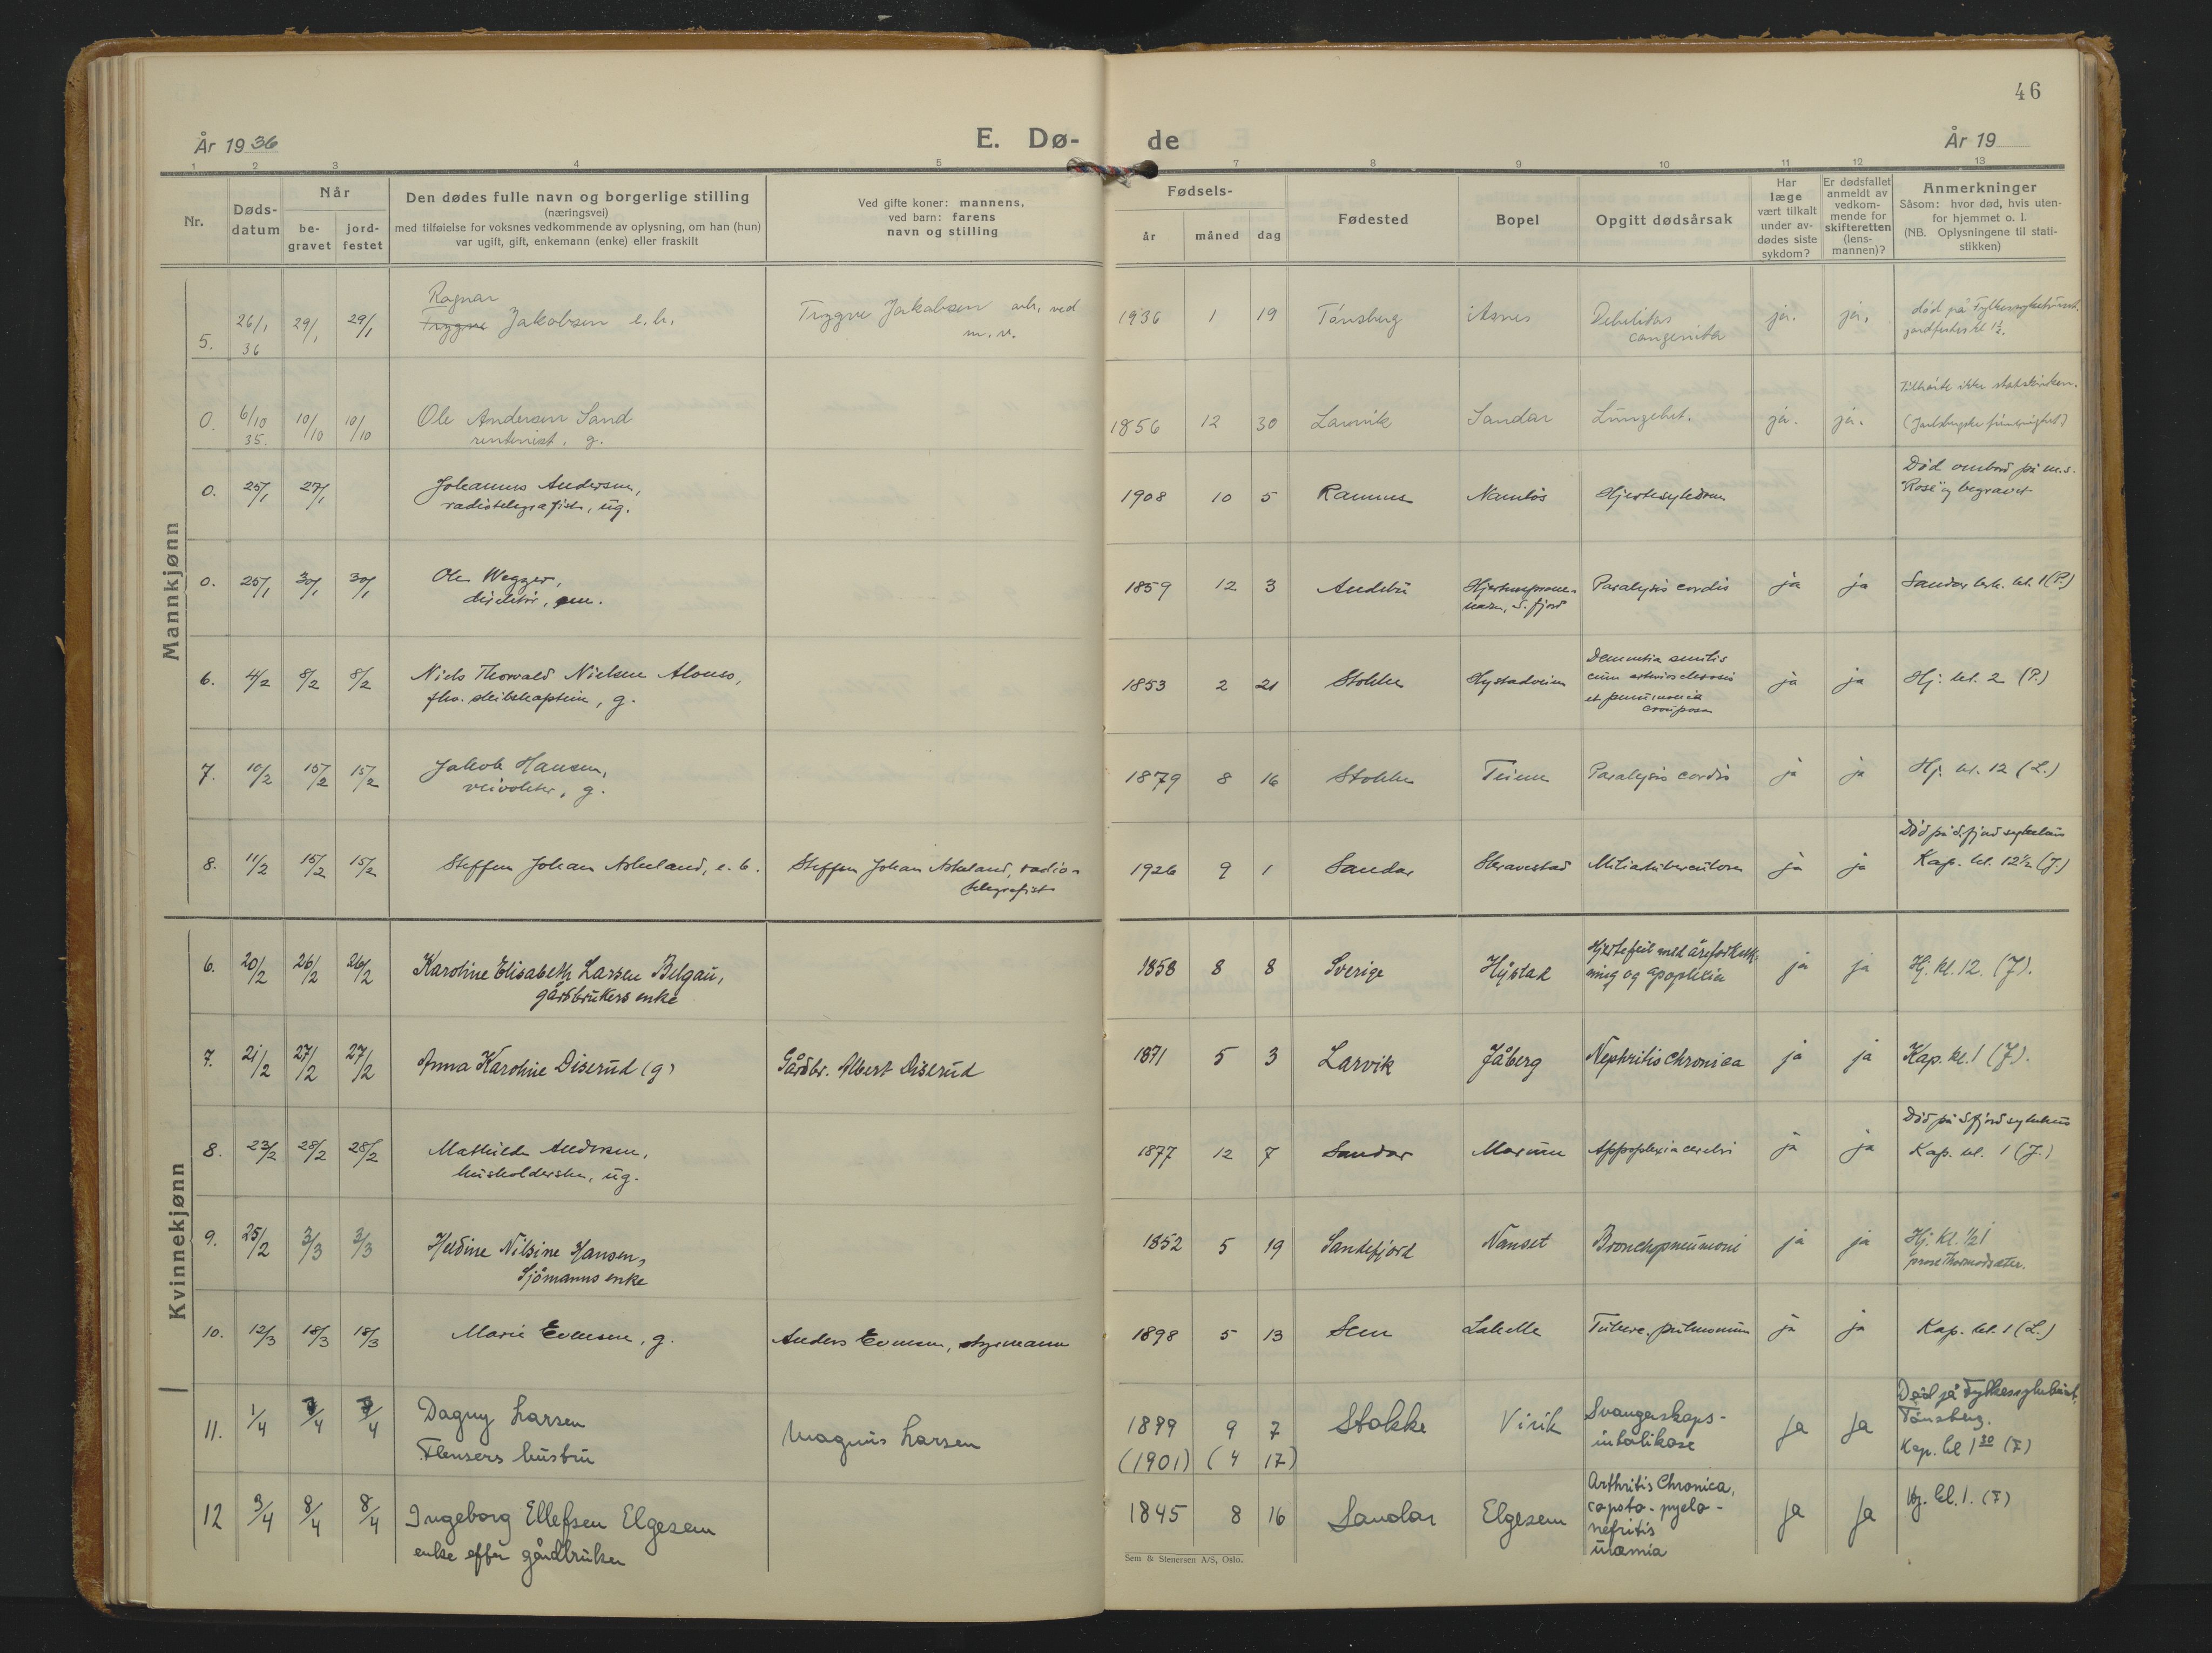 46
År 1936
E. Dø-
de
År 19
1 2 3 4 5 7 8 9 10 11 12 13
Nr.
Døds-
datum
Når
be-
gravet
jord-
festet
Den dødes fulle navn og borgerlige stilling
(næringsvei)
med tilføielse for voksnes vedkommende av oplysning, om han (hun)
var ugift, gift, enkemann (enke) eller fraskilt
Ved gifte koner: mannens,
ved barn: farens
navn og stilling
Fødsels-
år måned dag
Fødested
Bopel
Opgitt dødsårsak
Har
læge
vært tilkalt
under av-
dødes siste
sykdom?
Er dødsfallet
anmeldt av
vedkom-
mende for
skifteretten
(lens-
mannen)?
Anmerkninger
Såsom: hvor død, hvis uten-
for hjemmet o. l.
(NB. Oplysningene til stati-
stikken)
Mannkjønn
Ragnar
5. 26/1 29/1 29/1 Tryggve Jakobsen e.b. Tryggve Jakobsen arb. ved 1936 1 19 Tønsberg Debilitas ja. ja. død på Fylkessykehuset.
36 m.v. congenita jordfestes kl 1½.
Tilhørte ikke statskirken.
0. 6/10 10/10 10/10 Ole Andersen Sand 1856 12 30 Larvik Sandar Lungebet. ja. ja. (Jarlsbergske frimenighet)
35. rentenist, g.
Død ombord på m.s.
0. 25/1 27/1 Johannes Andersen, 1908 10 5 Ramnes Namløs Hjertesykdom "Rose" og begravet
radiotelegrafist, ug.
0. 25/1 30/1 30/1 Ole Wegger, 1859 12 3 Andebu Paralysis cordis ja ja Sandar kirke kl. 1 (P.)
direktør, em. S. fjord
Dementia senilis
6. 4/2 8/2 8/2 Niels Thorvald Nielsen 1853 2 21 Stokke Hystadveien cum arteriosclerosis ja ja Hj. kl. 2 (P.)
fhv. skibskaptein, g. et pneumonia
crouposa
7. 10/2 15/2 15/2 Jakob Hansen, 1879 8 16 Stokke Paralysis cordis ja ja Hj. kl. 12 (L.)
veivokter, g.
Død på S.fjord sykehus
8. 11/2 15/2 15/2 Steffen Johan Askeland, e. b. Steffen Johan Askeland, radio- 1926 9 1 Sandar Skravestad Miliartuberculose ja ja Kap. kl. 12½ (J.)
telegrafist
Kvinnekjønn
6. 20/2 26/2 26/2 Karoline Elisabeth Larsen Belgau, 1858 8 8 Sverige Hystad Hjertefeil med åreforkalk- ja ja Hj. kl. 12. (J).
gårdbrukers enke ning og apoplexia
7. 21/2 27/2 27/2 Anna Karoline Diserud (g) Gårdbr. Albert Diserud 1871 5 3 Larvik Jåberg Nephritis Chronica ja ja Kap. kl. 1 (J).
Død på S.fjord sykehus
8. 23/2 28/2 28/2 Mathilde Andersen, 1877 12 7 Sandar Marum Appoplexia cerebri ja ja Kap. kl. 1 (J.)
husholderske, ug.
9. 25/2 3/3 3/3 Heldine Nilsine Hansen, 1852 5 19 Sandefjord Nanset Bronchopneumoni ja ja Hj. kl. ½1
Sjømanns enke prost Thormodsæter.
10. 12/3 18/3 18/3 Marie Evensen, g. Anders Evensen, styrmann 1898 5 13 Sem Lahelle Tuberc. pulmonum ja ja Kap. kl. 1 (L.)
Død på Fylkessykehuset,
11. 1/4 7/4 7/4 Dagny Larsen Magnus Larsen 1899 9 7 Stokke Virik Svangerskaps- ja ja Tønsberg.
Flensers hustru (1901) (4 17) intoksikose Kap. kl 1 30 (F)
Arthritis Chronica,
12 3/4 8/4 8/4 Ingeborg Ellefsen Elgesem 1845 8 16 Sandar Elgesem cysto-pyelo- ja ja Hj. kl. 1. (F)
enke efter gårdbruker nefritis
uræmia
Sem & Stenersen A/S, Oslo.